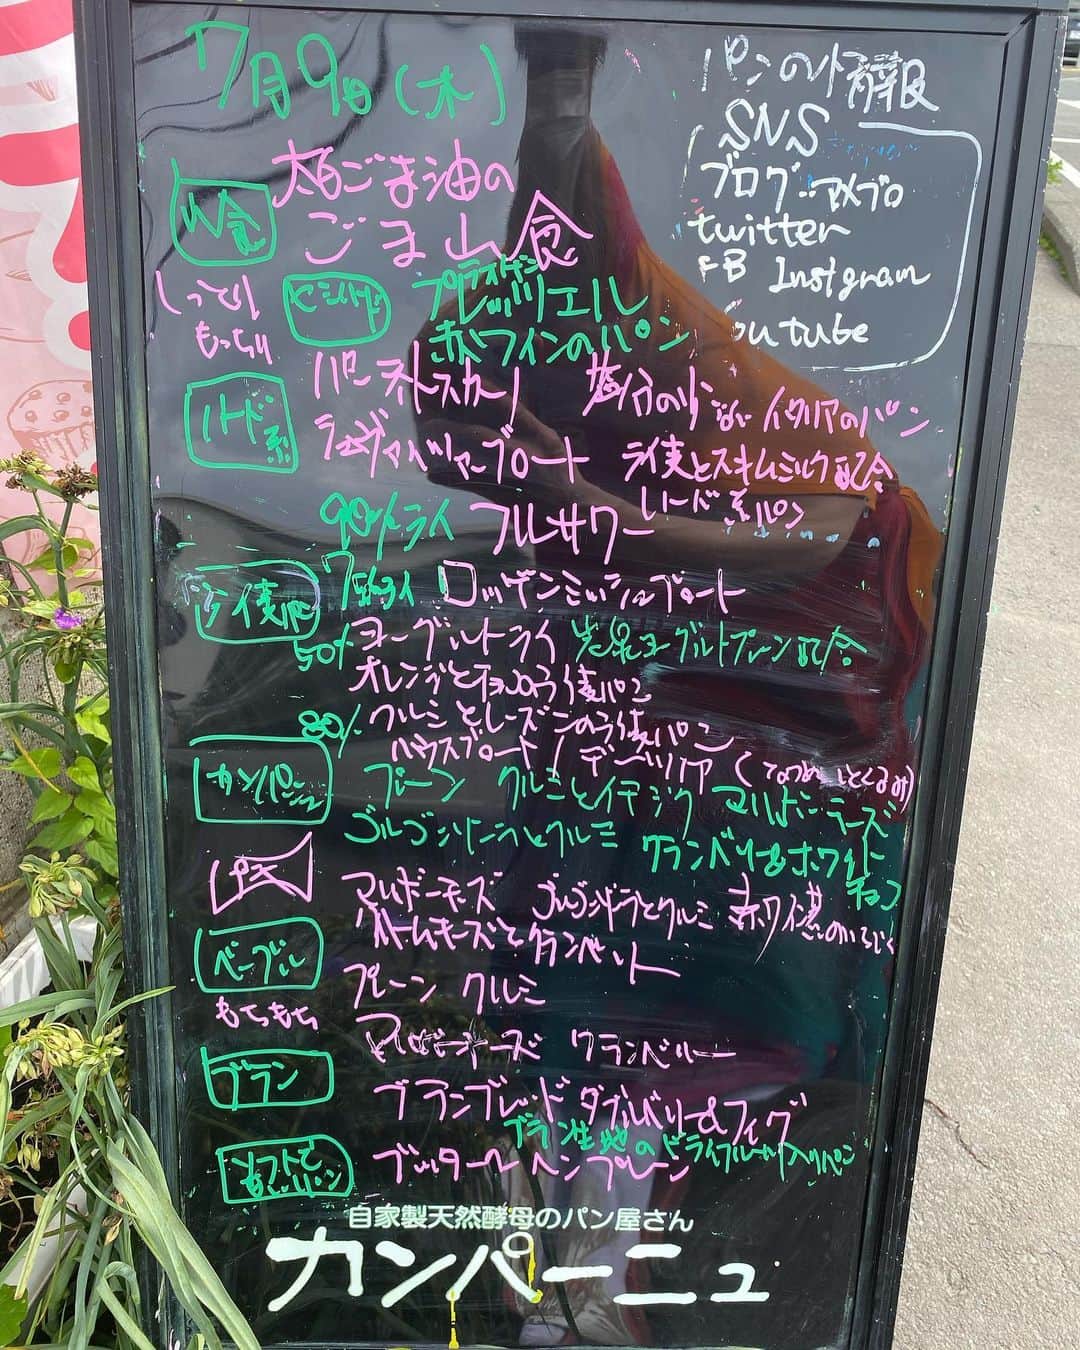 7月9日(木)
パンの情報
SNS
ブログ:アメブロ
twitter
FB Instgram
outube
山食
太白ごま油の
ごま山食
しっとり
もっちり
セミハード
プラストゲン
レッツェル
赤ワインのパン
ハード系
パーネトスカーノ
塩分の少ない イタリアのパン
シュヴァイツァーブロート
ライ麦とスキムミルク配合
ハード系パン
90%ライ フルサワー
ライ麦パン
ロッゲンミッシュブロート
50%
ヨーグルトライ
岩泉ヨーグルトプレーン配合
オレンジとチョコのライ麦パン
30%
クルミとレーズンのライ麦パン
ハウスブロート
カンパーニュ
プレーン クルミとイチジク マルボーチーズ
ゴルゴンゾーラとクルミ クランベリー&ホワイト
チョコ
プチ
マルボーチーズ ゴルゴンゾーラとクルミ
ベーグル
もちもち
プレーン クルミ
マルボーチーズ クランベリー
ブラン
ブランブレッド ダブルベリー&フィグ
ブラン生地のドライフルーツ入りパン
ソフトで
ブッタールヘンプレーン
自家製天然酵母のパン屋さん
カンパーニュ